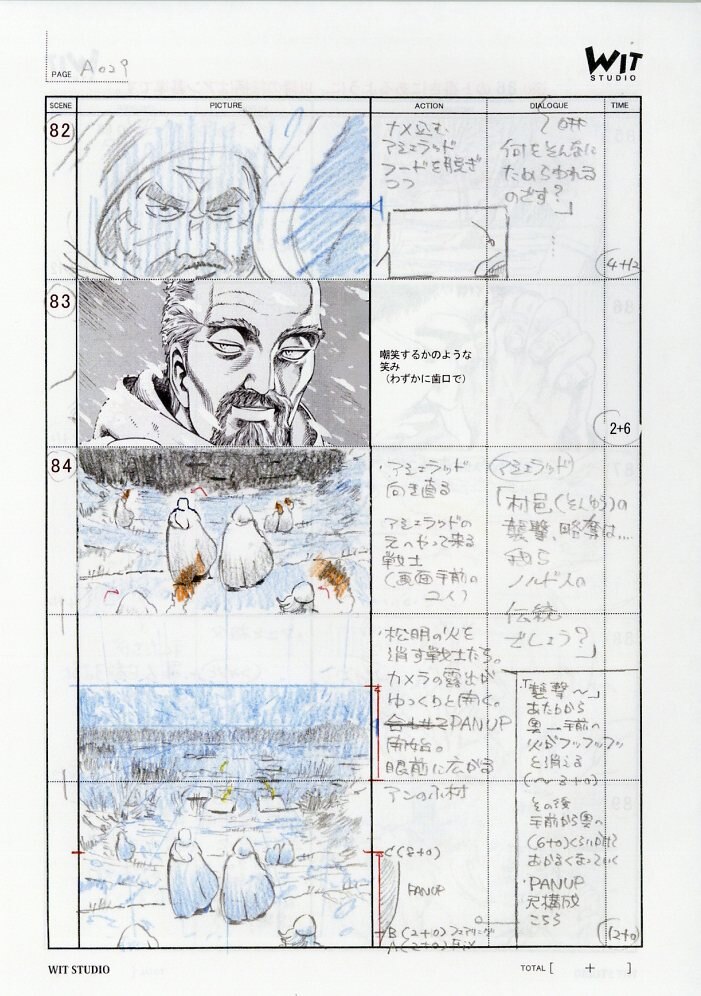 PAGE A029
WIT
STUDIO
SCENE
PICTURE
ACTION
DIALOGUE
TIME
82
ナメ込む
アシェラッド
フードを脱ぎ
つつ
何をそんなに
ためらわれる
のです?」
4+12
83
嘲笑するかのような
笑み
(わずかに歯口で)
2+6
84
・アシェラッド
向き直る
アシェラッドの
元へやって来る
戦士
(画面手前の
ユイ)
アシェラッド
「村邑(そんゆう)の
襲撃、略奪は…
我ら
ノルド人の
伝統
でしょう?」
・松明の火を
消す戦士たち。
カメラの露出が
ゆっくりと開く。
合わせてPANUP
開始。
眼前に広がる
アンのふ村
・「襲撃〜」
あたりから
奥→手前へ
火がフッフッフッ
と消える
(〜8+0)
その後
手前から奥へ
(6+0)くらいかけて
あかるくなっていく
・PANUP
尺構成
こちら
C(8+0)
PANUP
B(2+0)フェアリング
A(2+0)
12+0
WIT STUDIO
TOTAL [ + ]